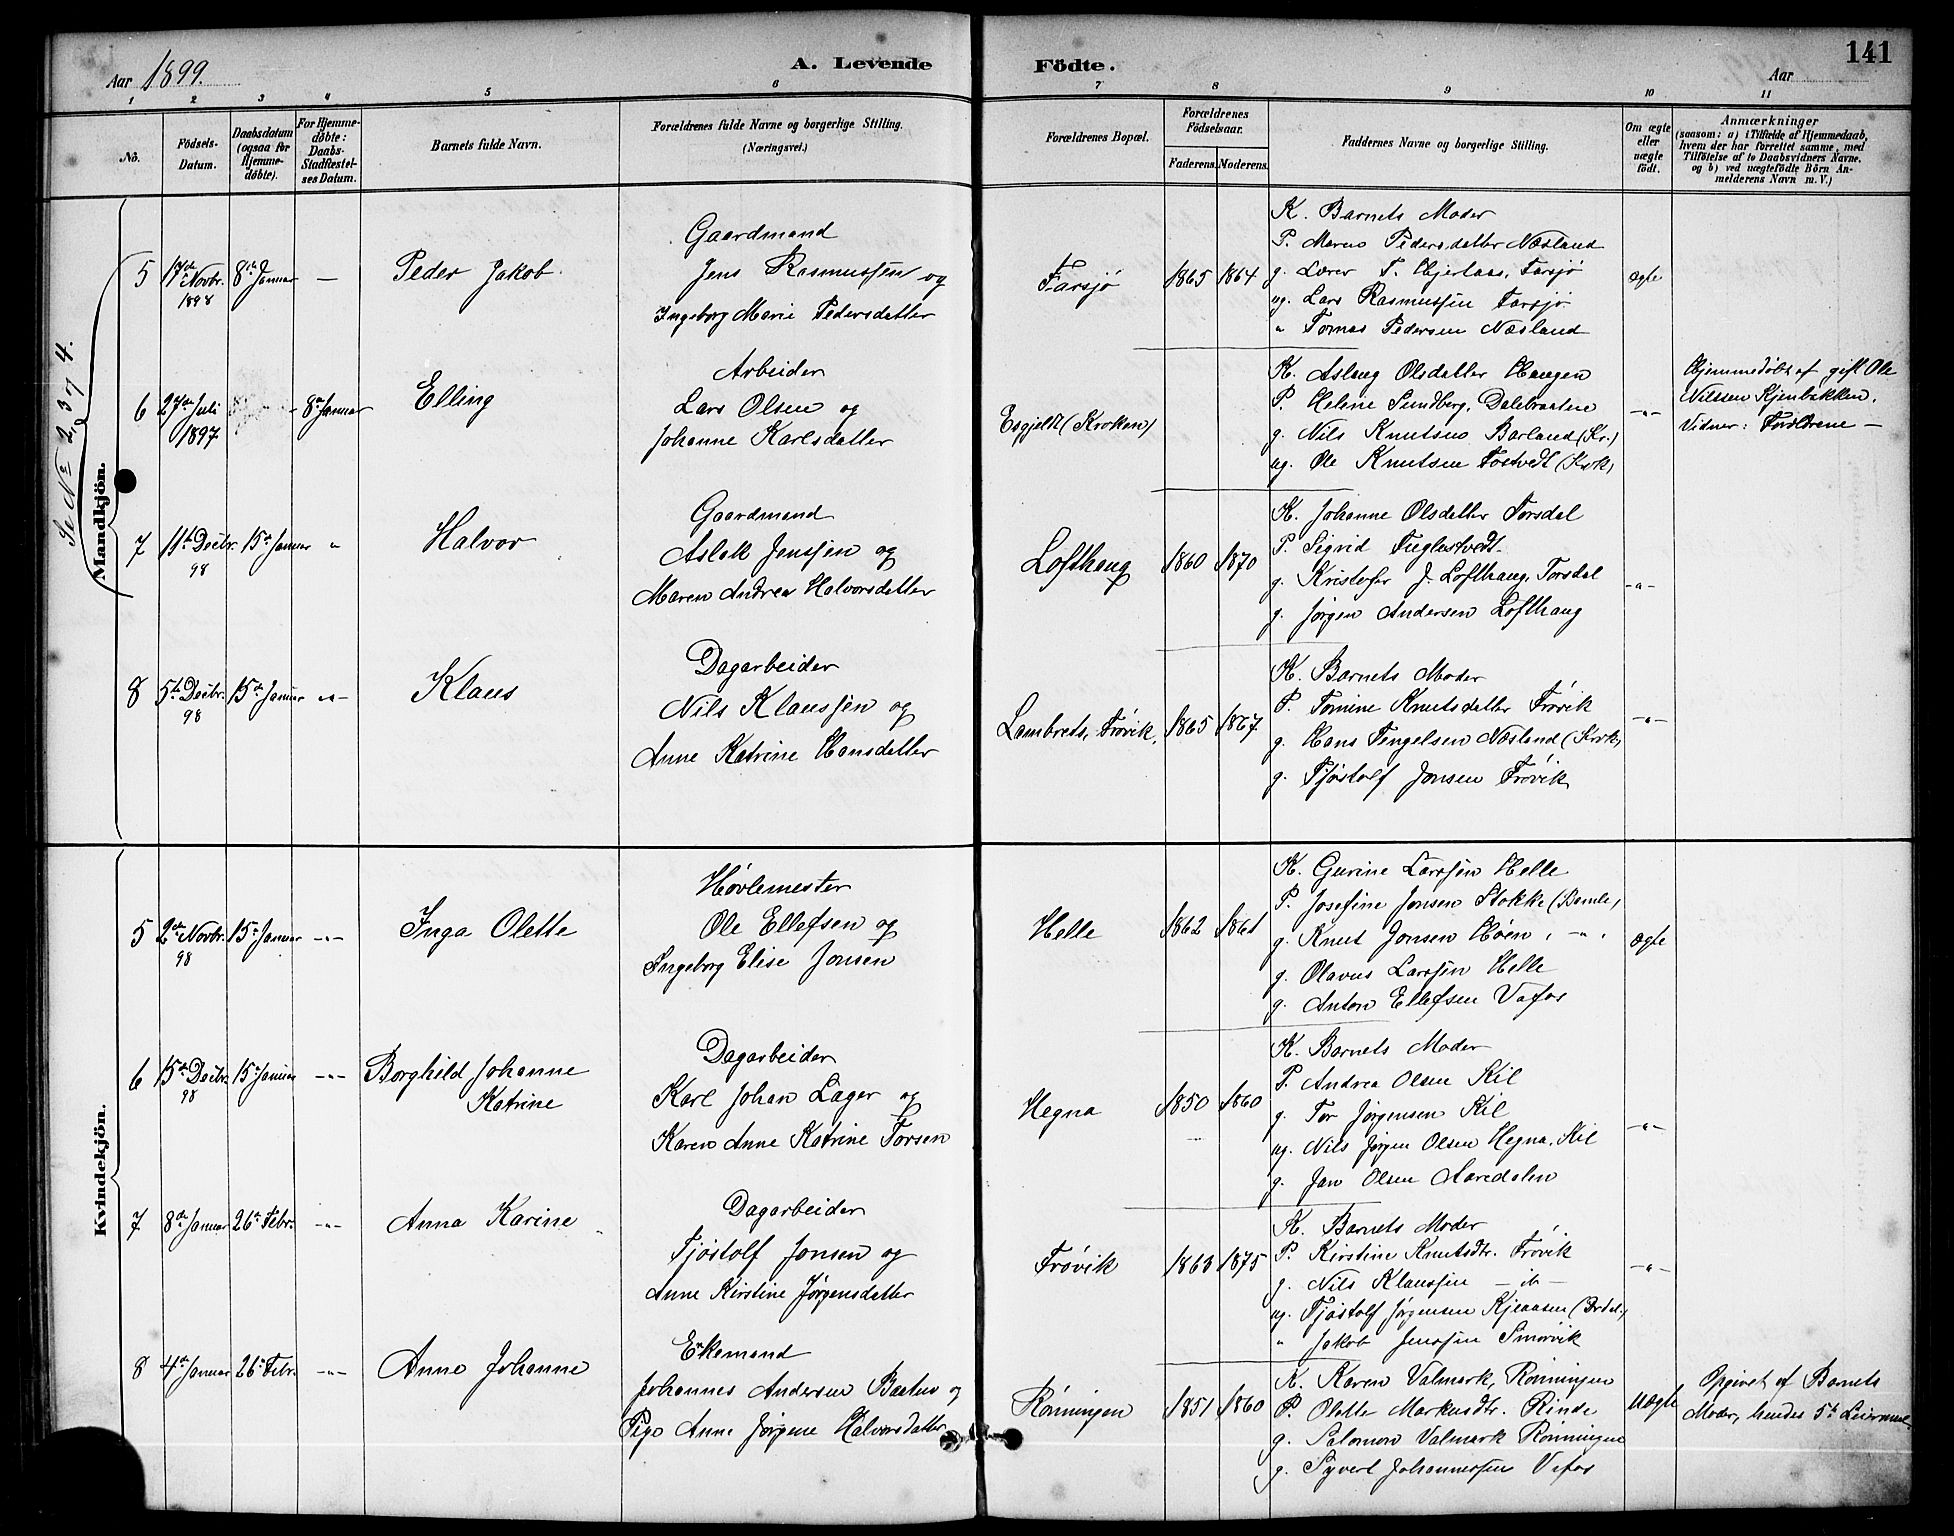 Aar 1899.
A. Levende Födte.
Aar
141
1 2 3 4 5 6 7 8 9 10 11
No.
Födsels-Datum.
Daabsdatum (ogsaa for Hjemmedöbte).
For Hjemmedöbte: Daabs-Stadfæstelses Datum.
Barnets fulde Navn.
Forældrenes fulde Navne og borgerlige Stilling.
(Næringsvei.)
Forældrenes Bopæl.
Forældrenes Födselsaar.
Faderens. Moderens.
Faddernes Navne og borgerlige Stilling.
Om ægte eller uægte födt.
Anmærkninger
(saasom: a) i Tilfælde af Hjemmedaab, hvem der har forrettet samme, med Tilföielse af to Daabsvidners Navne, og b) ved uægtefödte Börn Anmelderens Navn m. V.)
Se No 2, 3 og 4.
Mandkjön.
5 17de Novbr. 1898 8de Januar — Peder Jakob
Gaardmand
Jens Rasmussen og
Ingeborg Marie Pedersdatter
Farsjø 1865 1864
K. Barnets Moder
P. Maren Pedersdatter Næsland
g. Lærer T. Hjertaas, Farsjø
ug. Lars Rasmussen Farsjø
" Tomas Pedersen Næsland
ægte
6 27de Juli 1897 8de Januar Elling
Arbeider
Lars Olsen og
Johanne Karlsdatter
Esgjeldt (Kroken)
K. Aslaug Olsdatter Haugen
P. Helene Sundberg, Dalebraaten
g. Nils Knutsen Barland (Kr.)
ug. Ole Knutsen Tostvedt (Krok)
-"-
Hjemmedøbt af gift Ole
Nilssen Kjenbakken.
Vidner: Forældrene —
7 11te Decbr. 98 15de Januar " Halvor
Gaardmand
Aslak Jenssen og
Maren Andrea Halvorsdatter
Lofthaug 1860 1870
K. Johanne Olsdatter Torsdal
P. Sigrid Fuglestvedt
g. Kristofer J. Lofthaug, Torsdal
g. Jørgen Andersen Lofthaug
-"-
8 5te Decbr. 98 15de Januar -"- Klaus
Dagarbeider
Nils Klaussen og
Anne Katrine Hansdatter
Lambrets, Frøvik. 1865 1867
K. Barnets Moder
P. Tomine Knutsdatter Frøvik
g. Hans Tengelsen Næsland (Krok)
g. Fjøstolf Jonsen Frøvik
-"-
Kvindekjön.
5 2de Novbr. 98 15de Januar -"- Inga Olette
Høvlemester
Ole Ellefsen og
Ingeborg Elise Jonsen
Helle 1862 1861
K. Gurine Larssen Helle
P. Josefine Jonsen Stokke (Bamle)
g. Knut Jonsen Høen , -"- .
g. Olavus Larssen Helle
g. Anton Ellefsen Vafos
ægte
6 15de Decbr. 98 15de Januar -"- Borghild Johanne
Katrine
Dagarbeider
Karl Johan Lager og
Karen Anne Katrine Torsen
Hegna 1850 1860
K. Barnets Moder
P. Andrea Olsen Kil
g. Tor Jørgensen Kil
ug. Nils Jørgen Olsen Hegna, Kil
g. Jan Olsen Aarødalen
-"-
7 8de Januar 26de Febr. -"- Anna Karine
Dagarbeider
Fjøstolf Jonsen og
Anne Kirstine Jørgensdatter
Frøvik 1863 1875
K. Barnets Moder
P. Kirstine Knutsdtr. Frøvik
g. Nils Klaussen — it —
ug. Fjøstolf Jørgensen Kjeaasen
" Jakob Jenssen Smørvik
-"-
8 4de Januar 26de Febr. -"- Anne Johanne
Enkemand
Johannes Andersen og
Pige Anne Jørgine Halvorsdatter
Rønningen 1851 1860
K. Karen Valmark, Rønningen
P. Olette Markusdtr. Rinde
g. Salomon Valmark Rønningen
g. Syvert Johannessen Vafos
uægte
Opgivet af Barnets
Moder, hendes 5te Leiermaal